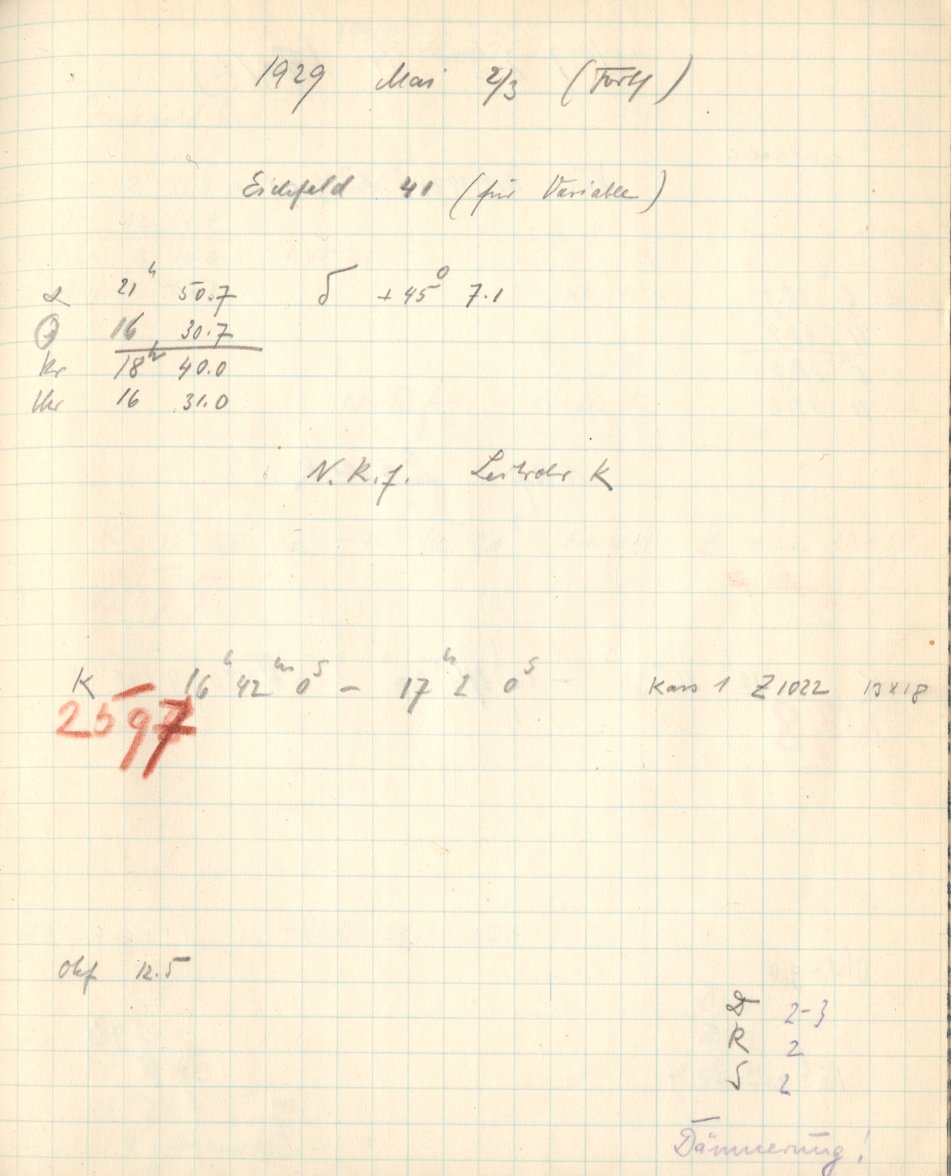 1929 Mai 2/3 (Forts)
Eichfeld 41 (für Variable)
α 21h 50.7 δ +45° 7.1
16 30.7
kr 18h 40.0
Uhr 16 31.0
N.K.f. Leitrohr K
K 16h 42m 0s – 17h 2 0s Kass 1 Z 1022 13x18
2597
Okf 12.5
D 2-3
R 2
S 2
Dämmerung!